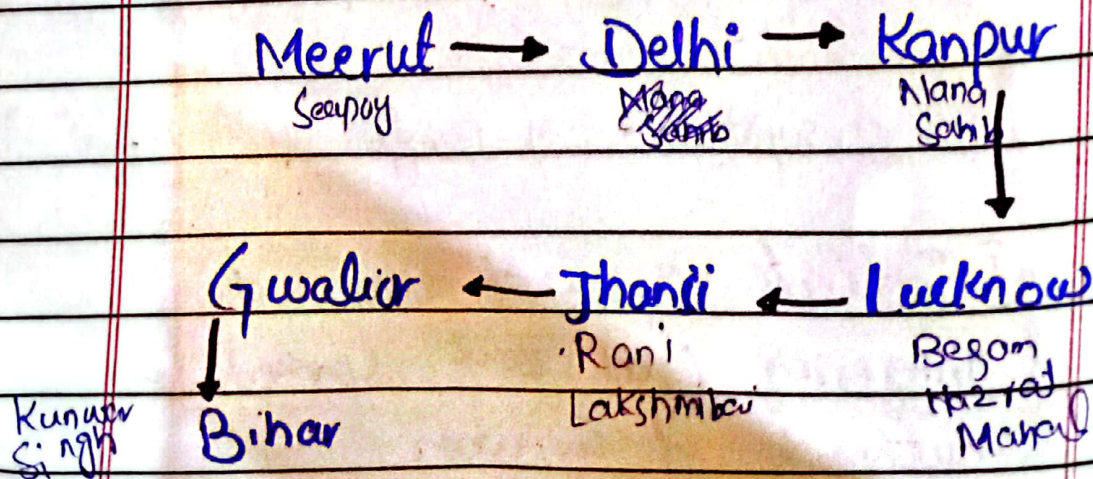 Meerut → Delhi → Kanpur
Seepoy
Nana
Sahib
Nana
Sahib
Gwalior ← Jhansi ← Lucknow
Rani
Lakshmibai
Begom
Hazrat
Mahal
Kunwar
Singh
Bihar